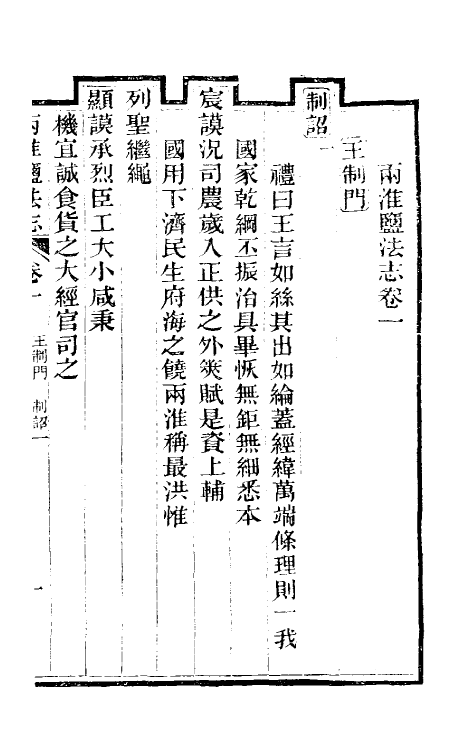 兩淮鹽法志卷一
王制門
制詔一
禮曰王言如絲其出如綸蓋經緯萬端條理則一我
國家乾綱丕振治具畢恢無鉅無細悉本
宸謨況司農歲入正供之外筴賦是資上輔
國用下濟民生府海之饒兩淮稱最洪惟
列聖繼繩
顯謨承烈臣工大小咸秉
機宜誠食貨之大經官司之
兩淮鹽法志 卷一 王制門 制詔一 一